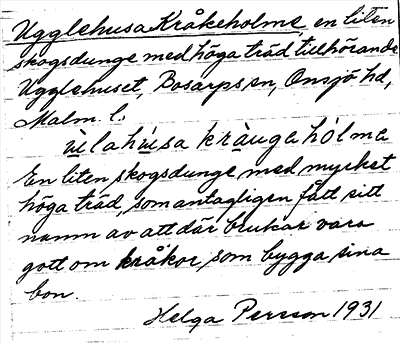 Ugglehusa Kråkeholme, en liten
skogsdunge med höga träd tillhörande
Ugglehuset, Bosarps sn, Onsjö hd,
Malm. l.
ùlahúsa kràugahólma
En liten skogsdunge med mycket
höga träd, som antagligen fått sitt
namn av att där brukar vara
gott om kråkor, som bygga sina
bon.
Helga Persson 1931